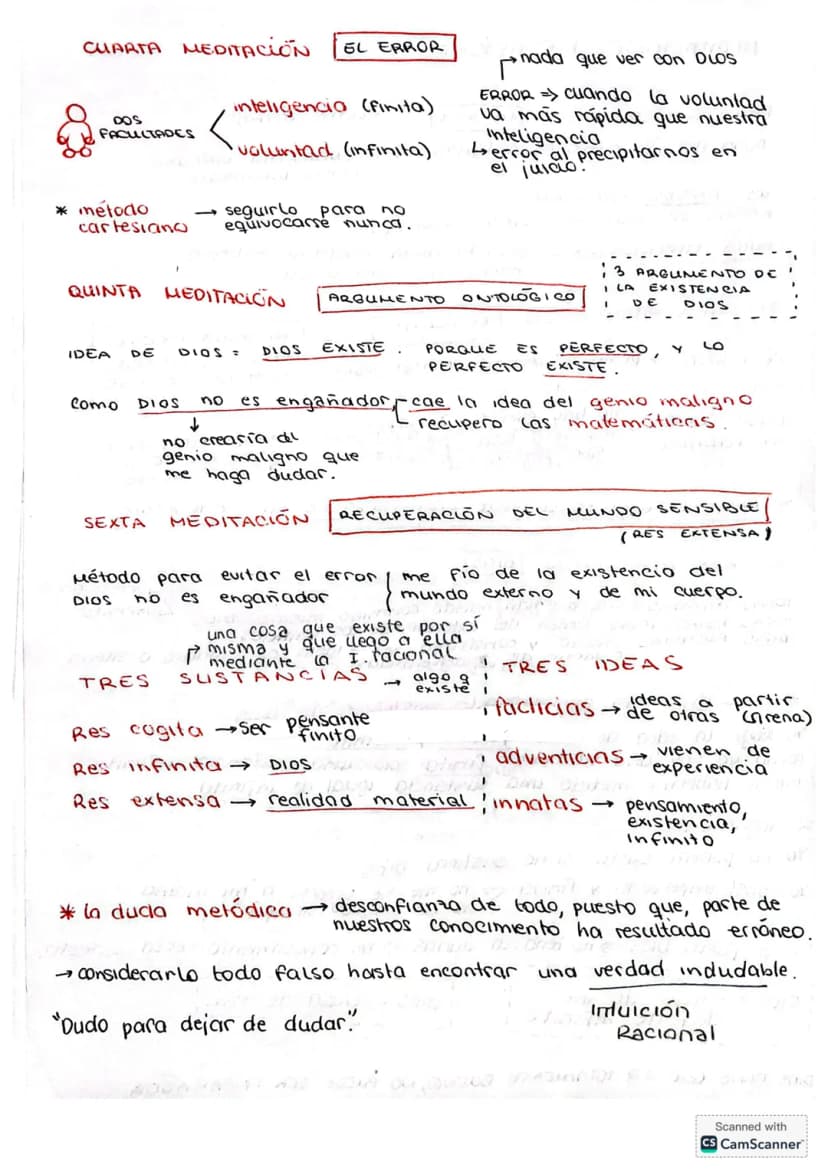 CUARTA MEDITACIÓN EL ERROR
nada que ver con DIOS
DOS
FACULTADES
inteligencia (finita)
voluntad (infinita)
ERROR ⇒ cuando la voluntad
va más rápida que nuestra
Inteligencia
↳ error al precipitarnos en
el juicio.
* método
cartesiano
→ seguirlo para no
equivocarse nunca.
QUINTA MEDITACIÓN ARGUMENTO ONTOLÓGICO
3 ARGUMENTO DE
LA EXISTENCIA
DE DIOS
IDEA DE DIOS = DIOS EXISTE. PORQUE ES PERFECTO, Y LO
PERFECTO EXISTE.
Como DIOS no es engañador, cae la idea del genio maligno
recupero las matemáticas.
↓
no crearía al
genio maligno que
me haga dudar.
SEXTA MEDITACIÓN RECUPERACIÓN DEL MUNDO SENSIBLE
(RES EXTENSA)
Método para evitar el error me fío de la existencia del
DIOS no es engañador mundo externo y de mi cuerpo.
una cosa que existe por sí
misma y que llego a ella
mediante la I. racional
TRES SUSTANCIAS → algo q
existe
Res cogita → Ser pensante
finito
Res infinita → DIOS
Res extensa → realidad material
TRES IDEAS
facticias → ideas a partir
de otras (sirena)
adventicias → vienen de
experiencia
innatas → pensamiento,
existencia,
infinito
* la duda metódica → desconfianza de todo, puesto que, parte de
nuestros conocimiento ha resultado erróneo.
→ considerarlo todo falso hasta encontrar una verdad indudable.
Intuición
Racional
"Dudo para dejar de dudar."
Scanned with
CS CamScanner